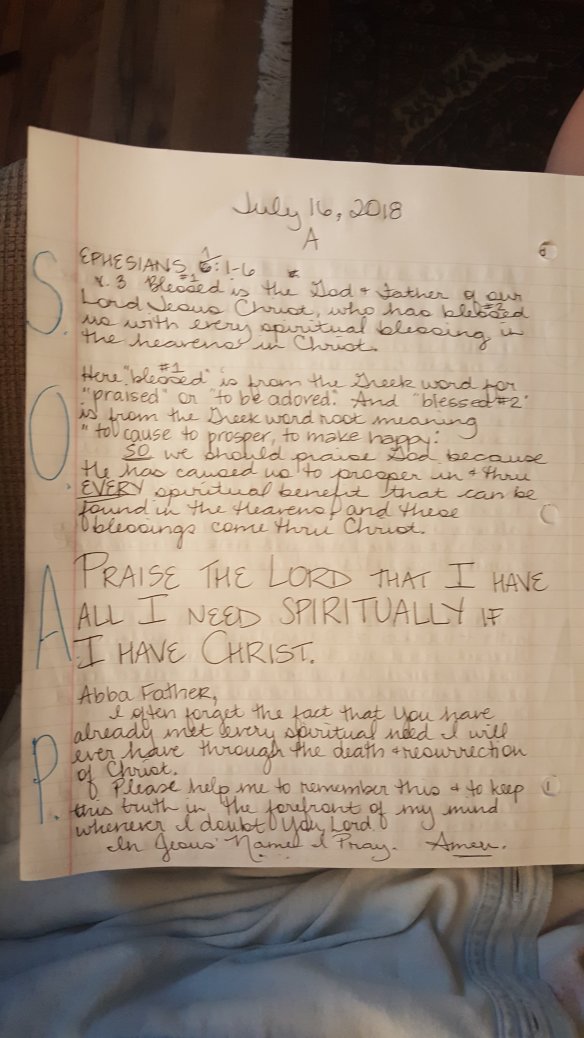 July 16, 2018
A
EPHESIANS 1:1-6
S.
v. 3 Blessed #1 is the God & Father of our
Lord Jesus Christ, who has blessed #2
us with every spiritual blessing in
the heavens in Christ.
O.
Here "blessed" #1 is from the Greek word for
"praised" or "to be adored." And "blessed #2"
is from the Greek word root meaning
"to cause to prosper, to make happy."
SO we should praise God because
He has caused us to prosper in & thru
EVERY spiritual benefit that can be
found in the Heavens, and these
blessings come thru Christ.
A.
PRAISE THE LORD THAT I HAVE
ALL I NEED SPIRITUALLY IF
I HAVE CHRIST.
P.
Abba Father,
I often forget the fact that You have
already met every spiritual need I will
ever have through the death & resurrection
of Christ.
Please help me to remember this & to keep
this truth in the forefront of my mind
whenever I doubt You, Lord.
In Jesus' Name I Pray. Amen.